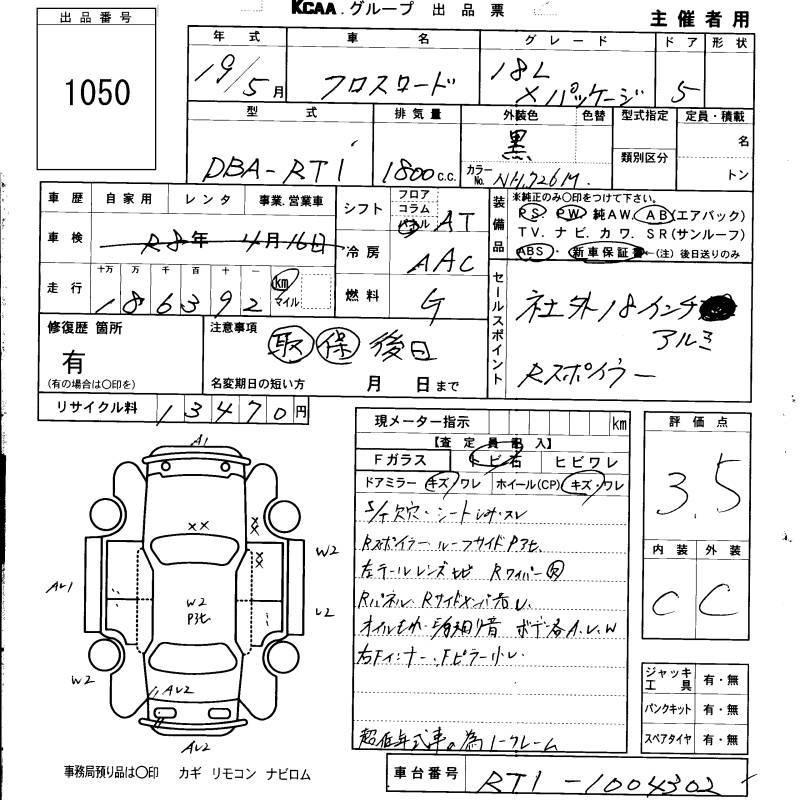 KCAA.グループ 出品票
主催者用
出品番号
1050
年式 車名 グレード ドア 形状
19/5月 クロスロード 18L Xパッケージ 5
型式 排気量 外装色 色替 型式指定 定員・積載
DBA-RT1 1800c.c. 黒 類別区分 名
カラーNo. NH726M トン
車歴 自家用 レンタ 事業.営業車
車検 R8年 4月16日
走行 十万 万 千 百 十 一 km マイル
186392
シフト フロア コラム パネル AT
冷房 AAC
燃料 G
装備品 ※純正のみ〇印をつけて下さい。
PS PW 純AW. AB(エアバック)
TV. ナビ. カワ. SR(サンルーフ)
ABS・新車保証書←(注)後日送りのみ
セールスポイント
社外18インチ
アルミ
Rスポイラー
修復歴 箇所
有
(有の場合は〇印を)
注意事項
取 保 後日
名変期日の短い方 月 日まで
リサイクル料 13470円
現メーター指示 km
【査定員記入】
Fガラス トビ石 ヒビワレ
ドアミラー キズ/ワレ ホイール(CP) キズ・ワレ
評価点
3.5
内装 外装
C C
S/ケ欠穴・シートシミ・スレ
Rスポイラー ルーフサイドPハセ
左テールレンズヒビ Rワイパー欠
A1
XX
XX
XX
W2
W2
Pハセ
AU1
U2
W2
AU2
AU2
超低年式車の為ノークレーム
ジャッキ工具 有・無
パンクキット 有・無
スペアタイヤ 有・無
事務局預り品は〇印 カギ リモコン ナビロム
車台番号 RT1-1004302